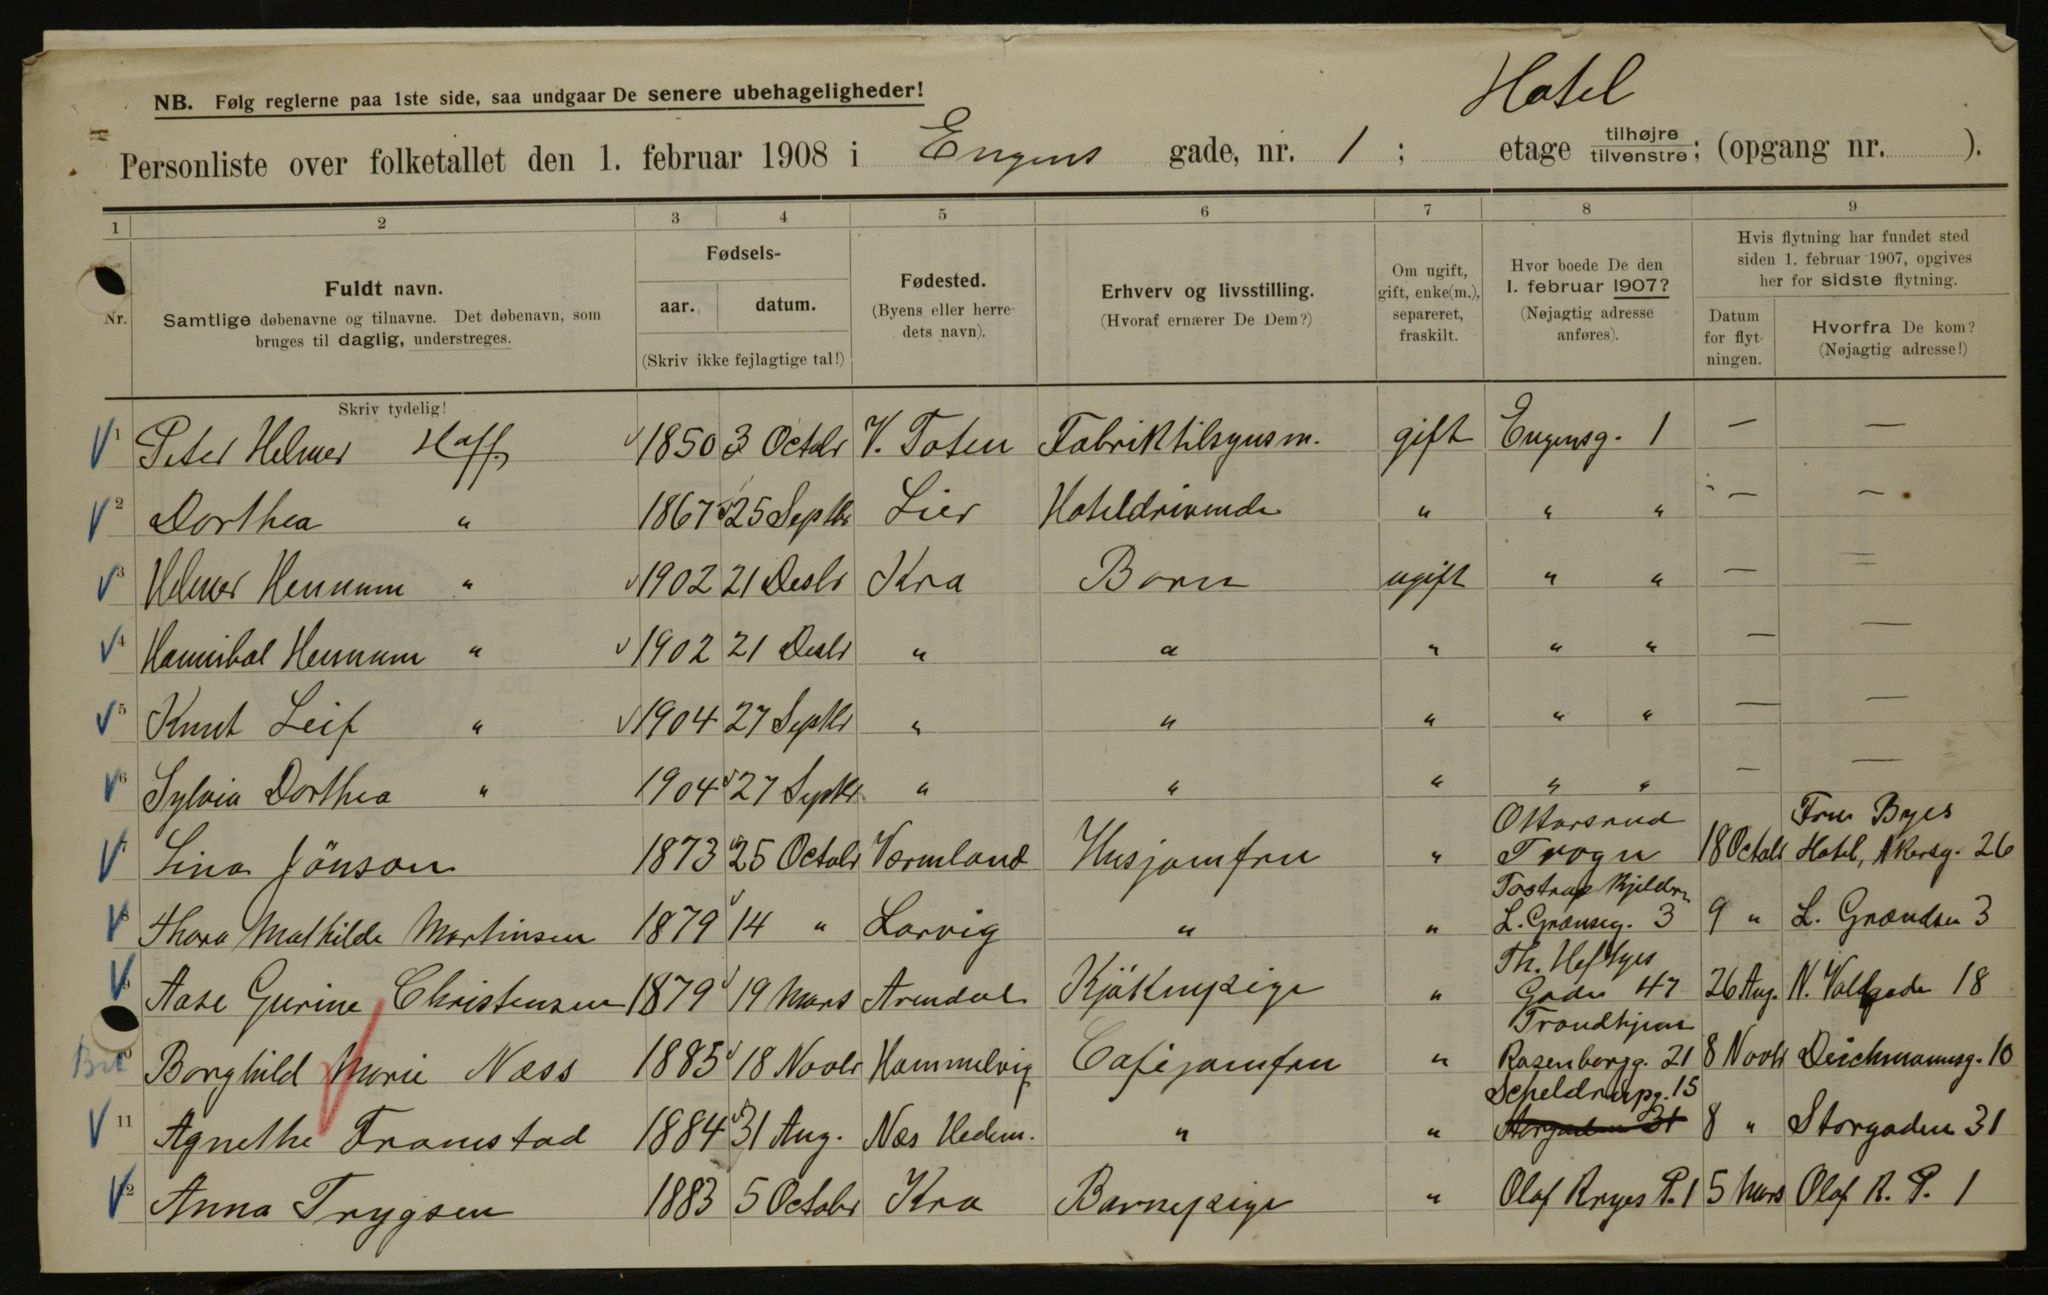 Hotel
NB. Følg reglerne paa 1ste side, saa undgaar De senere ubehageligheder!
Personliste over folketallet den 1. februar 1908 i Engens gade, nr. 1 ; etage tilhøjre tilvenstre; (opgang nr. ).
1 2 3 4 5 6 7 8 9
Nr.
Fuldt navn.
Samtlige døbenavne og tilnavne. Det døbenavn, som
bruges til daglig, understreges.
Skriv tydelig!
Fødsels-
aar. datum.
(Skriv ikke fejlagtige tal!)
Fødested.
(Byens eller herre-
dets navn).
Erhverv og livsstilling.
(Hvoraf ernærer De Dem?)
Om ugift,
gift, enke(m.),
separeret,
fraskilt.
Hvor boede De den
1. februar 1907?
(Nøjagtig adresse
anføres).
Hvis flytning har fundet sted
siden 1. februar 1907, opgives
her for sidste flytning.
Datum
for flyt-
ningen.
Hvorfra De kom?
(Nøjagtig adresse!)
1 Peter Helmer Hoff 1850 3 Octobr V. Toten Fabriktilsynsm. gift Engensg. 1 — —
2 Dorthea " 1867 25 Septbr Lier Hoteldrivende " " " — —
3 Helmer Hennum " 1902 21 Desbr Kra Barn ugift " " — =
4 Hannibal Hennum " 1902 21 Desbr " " " " " — —
5 Knut Leif " 1904 27 Septbr " " " " " — —
6 Sylvia Dorthea " 1904 27 Septbr " " " " " — —
Ottarsrud Fru Byes
7 Lina Jönson 1873 25 Octobr Værmland Husjomfru " Trøgn 18 Octobr Hotel, Akersg. 26
Tostrup Kjelder
8 Thora Mathilde Martinsen 1879 14 " Larvig " " L. Grænseg. 3 9 " L. Grændsen 3
Th. Heftyes
9 Aase Gurine Christensen 1879 19 Mars Arendal Kjøkenpige " Gade 47 26 Aug. N. Voldgade 18
Trondhjem
10 Borghild Marie Næss 1885 18 Novbr Hommelvig Cafejomfru " Rosenborgg. 21 8 Novbr Deichmannsg. 10
Scheldrupg. 15
11 Agnethe Framstad 1884 31 Aug. Næs Hedem. " " Storgaden 31 8 " Storgaden 31
12 Anna Trygsen 1883 5 Octobr Kra Barnepige " Olaf Ryes P. 1 5 Mars Olaf R. P. 1